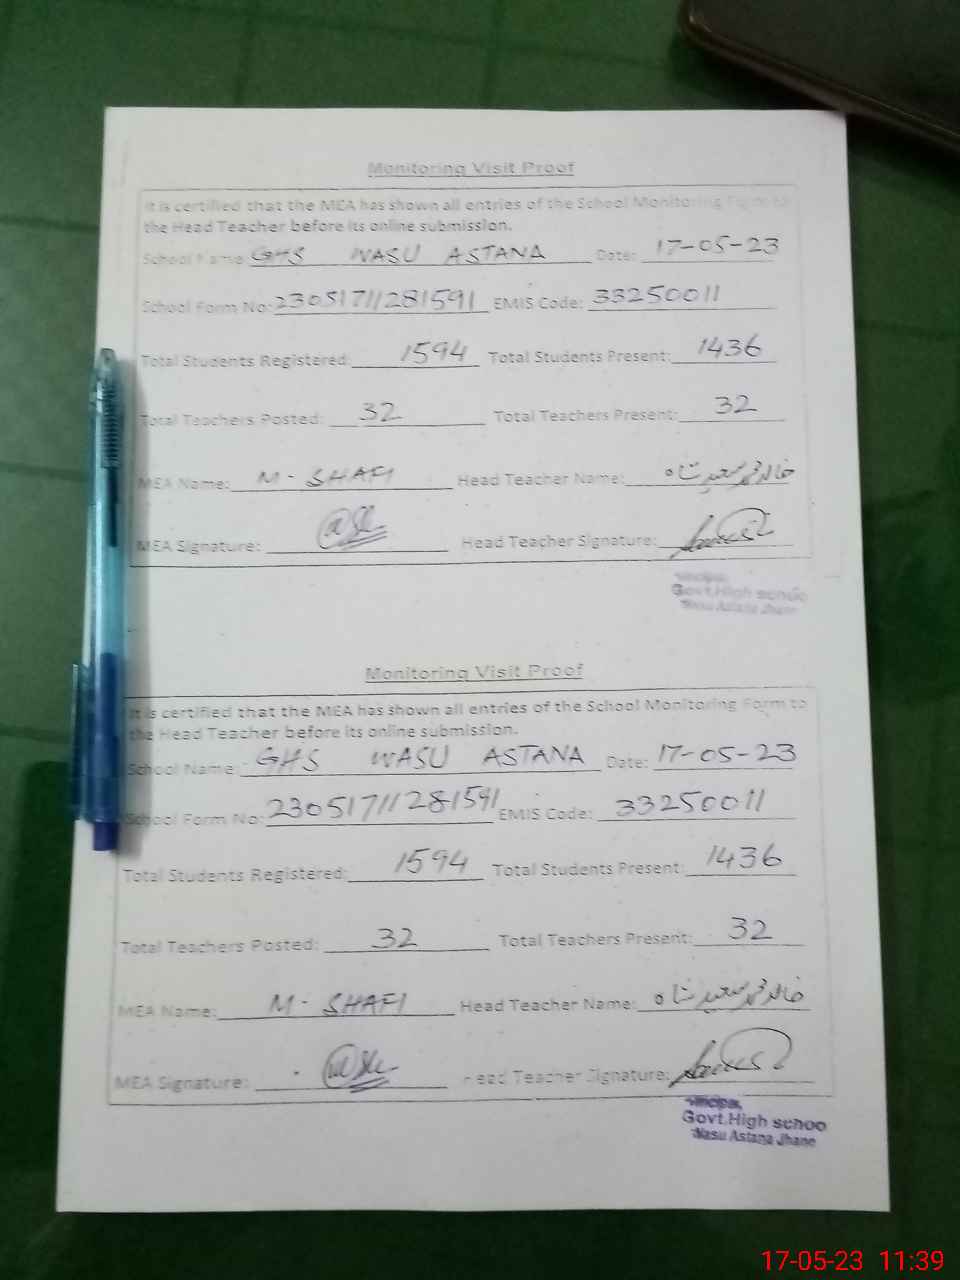 Monitoring Visit Proof
It is certified that the MEA has shown all entries of the School Monitoring Form to
the Head Teacher before its online submission.
School Name GHS WASU ASTANA Date: 17-05-23
School Form No: 23051711281591 EMIS Code: 33250011
Total Students Registered: 1594 Total Students Present: 1436
Total Teachers Posted: 32 Total Teachers Present: 32
MEA Name: M- SHAFI Head Teacher Name: خالد محمد سعید شاہ
MEA Signature: Head Teacher Signature:
Principal,
Govt.High schoo
Wasu Astana Jhang
Monitoring Visit Proof
It is certified that the MEA has shown all entries of the School Monitoring Form to
the Head Teacher before its online submission.
School Name: GHS WASU ASTANA Date: 17-05-23
School Form No: 23051711281591 EMIS Code: 33250011
Total Students Registered: 1594 Total Students Present: 1436
Total Teachers Posted: 32 Total Teachers Present: 32
MEA Name: M- SHAFI Head Teacher Name: خالد محمد سعید شاہ
MEA Signature: Head Teacher Signature:
Principal,
Govt.High schoo
Wasu Astana Jhang
17-05-23 11:39